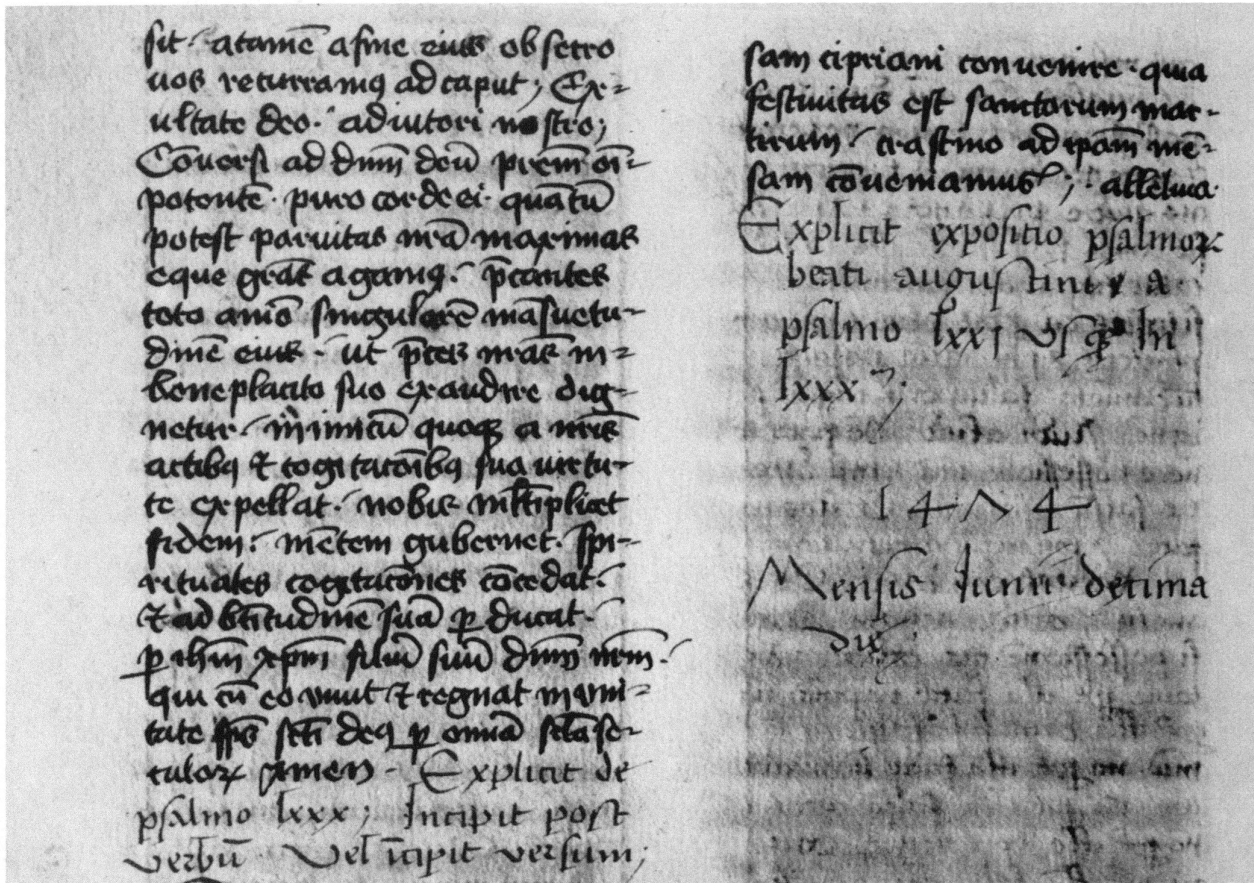 sit· atamē a fine eius obsecro
uos recurramꝯ ad caput; Ex-
ultate deo· adiutori nostro;
Cōuersi ad dn̄m deū pr̄em om̄-
potentē· puro corde ei· quātū
potest paruitas nr̄a maximas
eque gr̄as agamꝯ· p̄cantes
toto aīo singularē māsuetu-
dinē eius· ut p̄ces nr̄as in-
beneplacito suo exaudire dig-
netur· inimicū quoqꝫ a nr̄is
actibꝯ ⁊ cogitacōibꝯ sua uirtu-
te expellat· nobis ml̄tiplicet
fidem· mētem gubernet· spi-
rituales cogitacōnes cōcedat·
⁊ ad bt̄itudinē suā ꝑducat·
ꝑ ih̄m xp̄m filiū suū dn̄m nr̄m·
qui cū eo uiuit ⁊ regnat in uni-
tate sp̄s sc̄ti deꝯ ꝑ omīa sc̄la se-
culoꝝ amen· Explicit de
psalmo lxxx; Incipit post
verbū vel īcipit versum;
sam cipriani conuenire· quia
festiuitas est sanctorum mar-
tirum· crastino ad ip̄am mē-
sam cōueniamus; alleluia·
Explicit expositio psalmoꝝ
beati augustini a
psalmo lxxj vsqꝫ In
lxxx;
1474
Mensis Iunii decima
die;